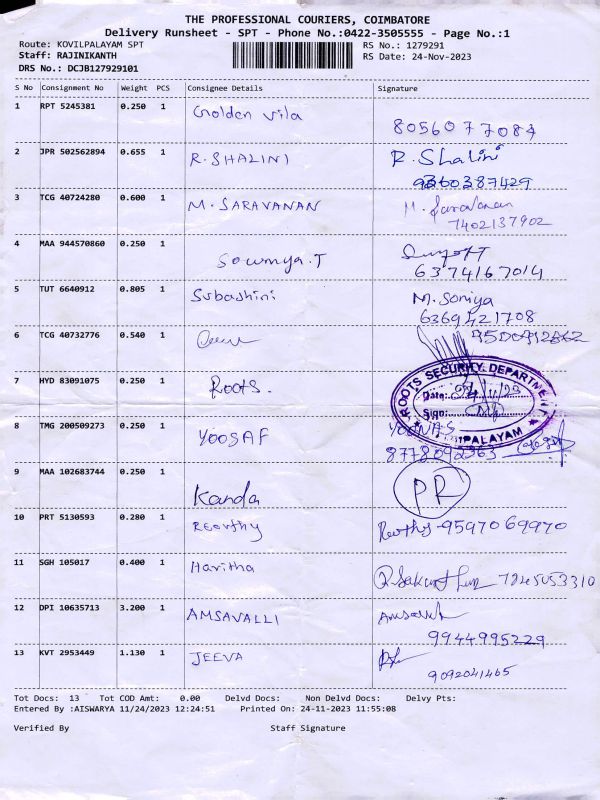 THE PROFESSIONAL COURIERS, COIMBATORE
Delivery Runsheet - SPT - Phone No.:0422-3505555 - Page No.:1
Route: KOVILPALAYAM SPT RS No.: 1279291
Staff: RAJINIKANTH RS Date: 24-Nov-2023
DRS No.: DCJB127929101
S No Consignment No Weight PCS Consignee Details Signature
1 RPT 5245381 0.250 1 Golden Vila
8056077084
2 JPR 502562894 0.655 1 R. SHALINI R. Shalini
9360387429
3 TCG 40724280 0.600 1 M. SARAVANAN M. Saravanan
7402137902
4 MAA 944570860 0.250 1 Sowmya.T
6374167014
5 TUT 6640912 0.805 1 Subashini M. Soniya
6369421708
6 TCG 40732776 0.540 1
7 HYD 83091075 0.250 1 Roots.
ROOTS SECURITY DEPARTMENT
Date: 24/11/23
Sign:
8 TMG 200509273 0.250 1 YOOSAF YOONAS
9 MAA 102683744 0.250 1 Kanda PR
10 PRT 5130593 0.280 1 9597069970
11 SGH 105017 0.400 1 Haritha
12 DPI 10635713 3.200 1 AMSAVALLI
9944995229
13 KVT 2953449 1.130 1 JEEVA
9092041465
Tot Docs: 13 Tot COD Amt: 0.00 Delvd Docs: Non Delvd Docs: Delvy Pts:
Entered By :AISWARYA 11/24/2023 12:24:51 Printed On: 24-11-2023 11:55:08
Verified By Staff Signature